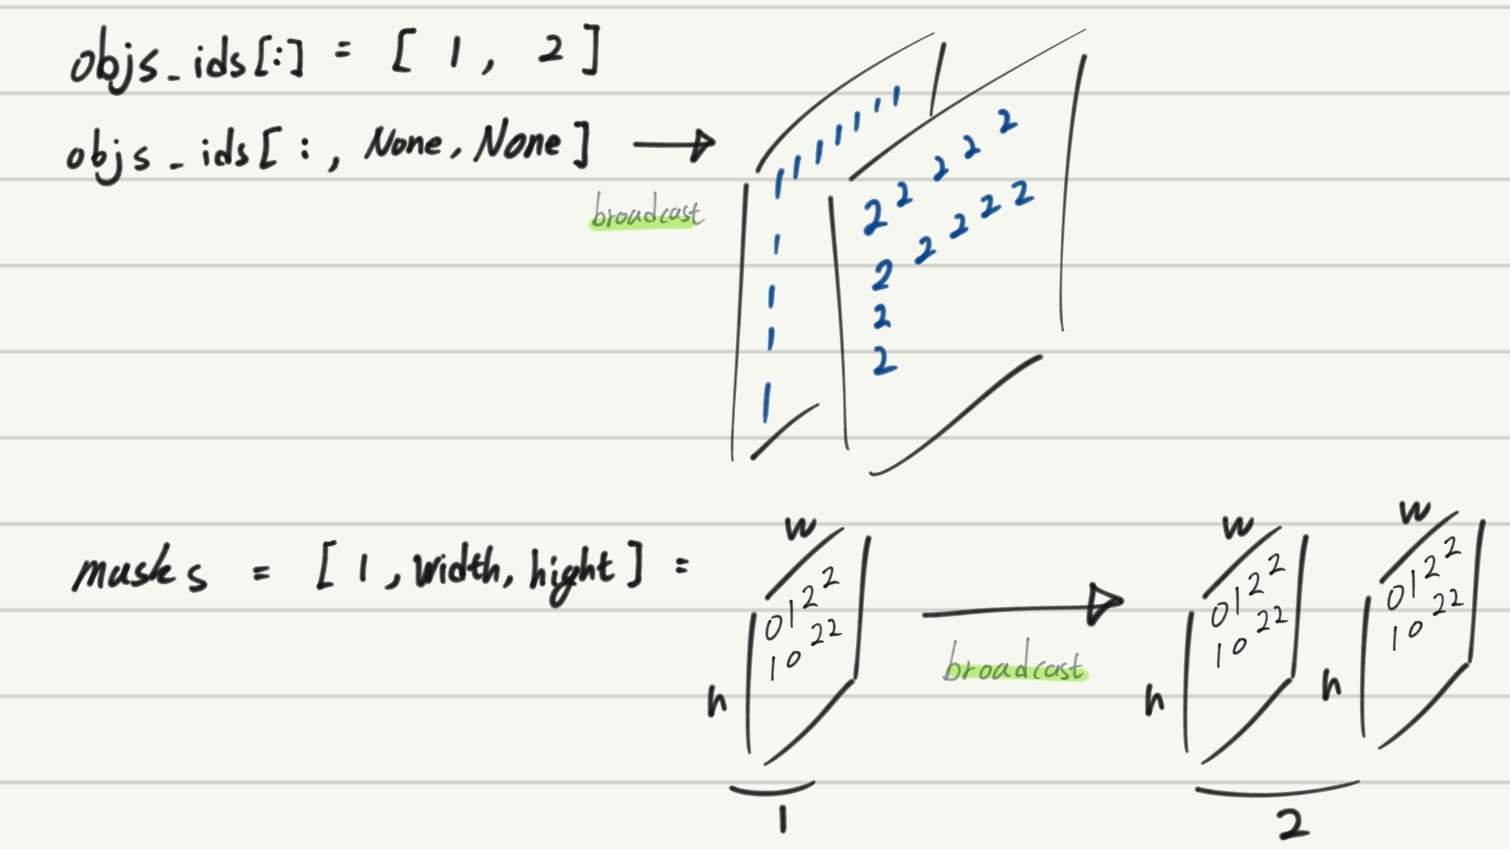 objs_ids[:] = [ 1 , 2 ]
objs_ids[ : , None, None ] →
broadcast
1 1 1 1 1 1 1
2 2 2 2 2
1
2 2 2 2 2
1
2
1
2
1
masks = [ 1 , width, hight ] =
w
0 1 2 2
1 0 2 2
h
1
broadcast
w
0 1 2 2
1 0 2 2
h
w
0 1 2 2
1 0 2 2
h
2